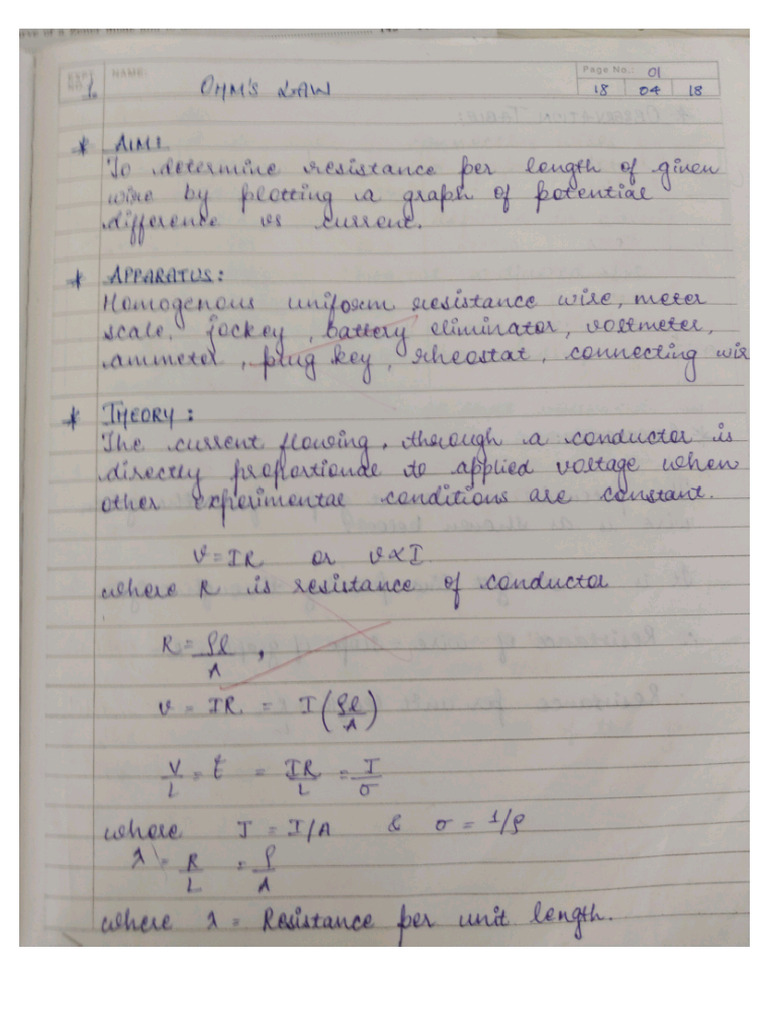 EXPT. NO. 1. NAME: OHM'S LAW Page No.: 01
18 04 18
* AIM:
To determine resistance per length of given
wire by plotting a graph of potential
difference vs current.
* APPARATUS:
Homogenous uniform resistance wire, meter
scale, jockey, battery eliminator, voltmeter,
ammeter, plug key, rheostat, connecting wir
* THEORY:
The current flowing, through a conductor is
directly proportional to applied voltage when
other experimental conditions are constant.
V = IR or V ∝ I
where R is resistance of conductor
R = ρl/A,
V = IR = I(ρl/A)
V/L = E = IR/L = J/σ
where J = I/A & σ = 1/ρ
λ = R/L = ρ/A
where λ = Resistance per unit length.